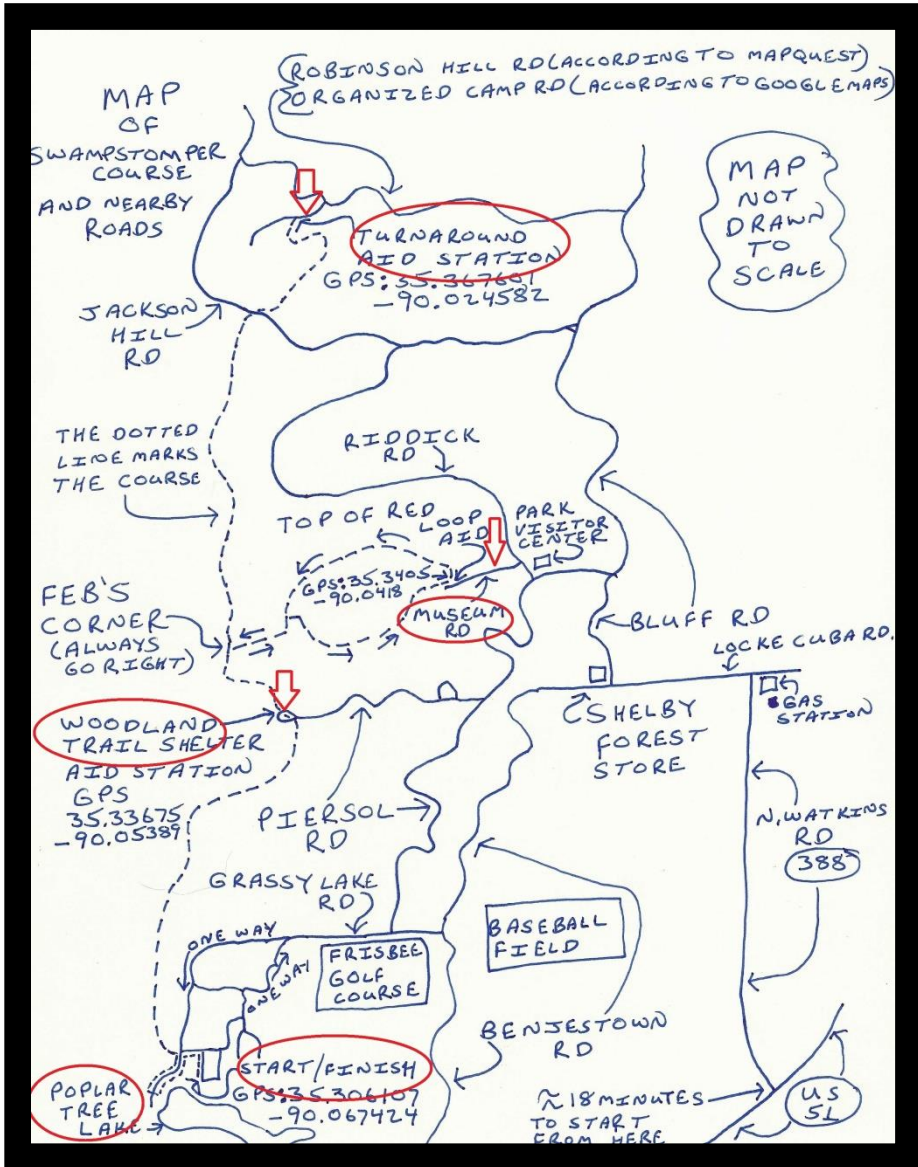 (ROBINSON HILL RD (ACCORDING TO MAPQUEST)
ORGANIZED CAMP RD (ACCORDING TO GOOGLE MAPS)
MAP
OF
SWAMPSTOMPER
COURSE
AND NEARBY
ROADS
MAP
NOT
DRAWN
TO
SCALE
TURNAROUND
AID STATION
GPS: 35.367601
-90.024582
JACKSON
HILL
RD
THE DOTTED
LINE MARKS
THE COURSE
RIDDICK
RD
TOP OF RED
LOOP
AID
PARK
VISITOR
CENTER
GPS: 35.3405
-90.0418
MUSEUM
RD
FEB'S
CORNER
(ALWAYS
GO RIGHT)
BLUFF RD
LOCKE CUBA RD.
GAS
STATION
SHELBY
FOREST
STORE
WOODLAND
TRAIL SHELTER
AID STATION
GPS
35.33675
-90.05389
PIERSOL
RD
N. WATKINS
RD
388
GRASSY LAKE
RD
ONE WAY
ONE WAY
FRISBEE
GOLF
COURSE
BASEBALL
FIELD
BENJESTOWN
RD
START/FINISH
GPS: 35.306107
-90.067424
POPLAR
TREE
LAKE
≈18 MINUTES
TO START
FROM HERE
US
51